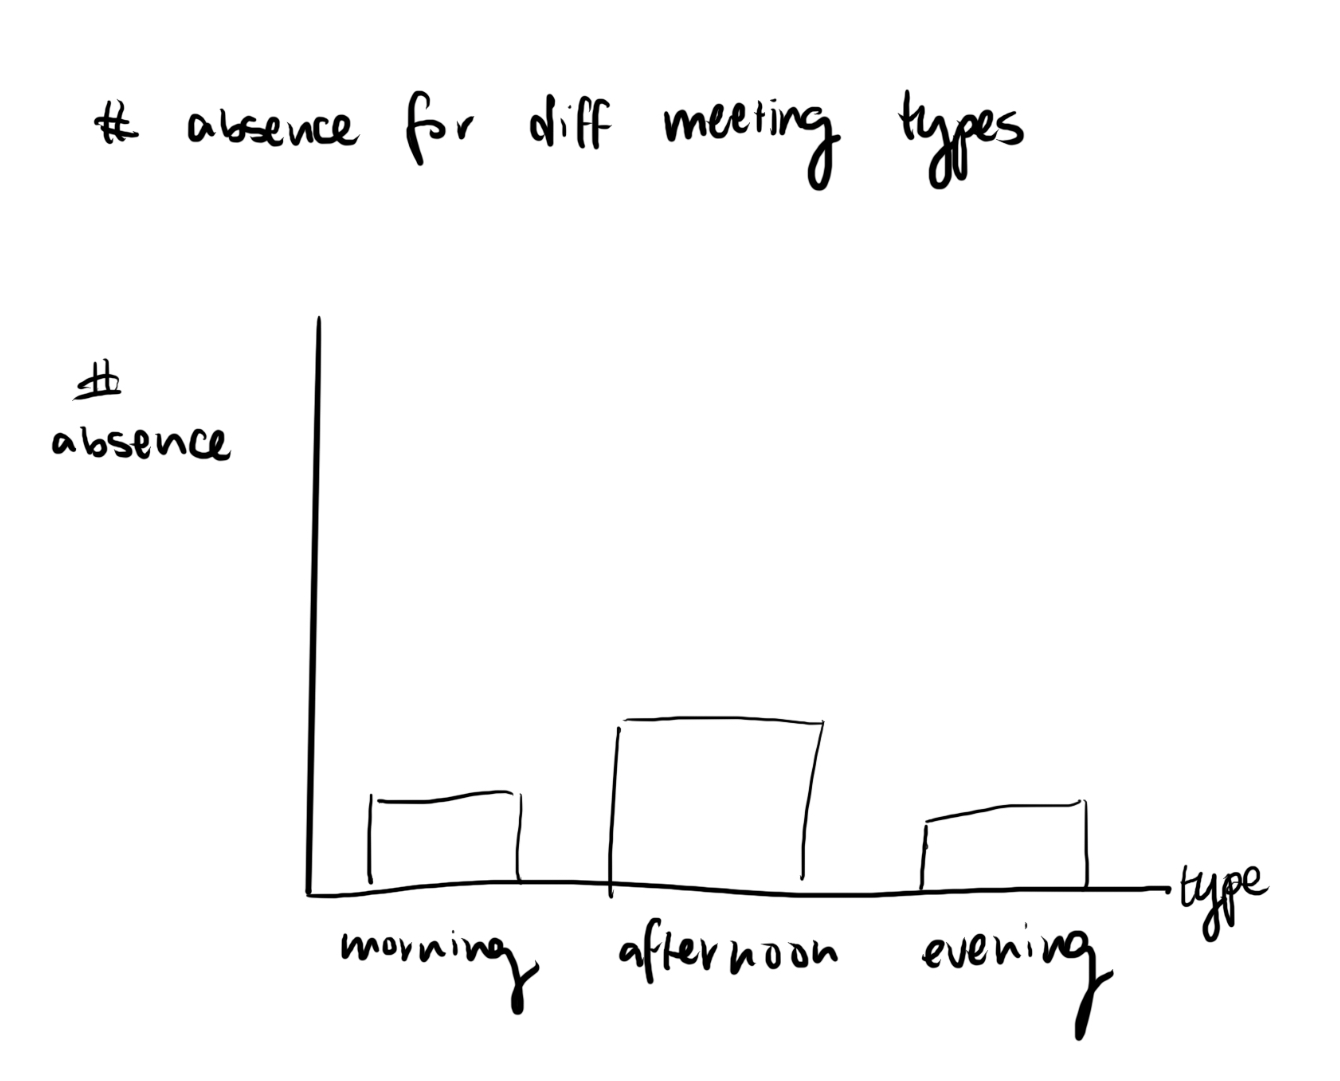 # absence for diff meeting types
#
absence
type
morning afternoon evening